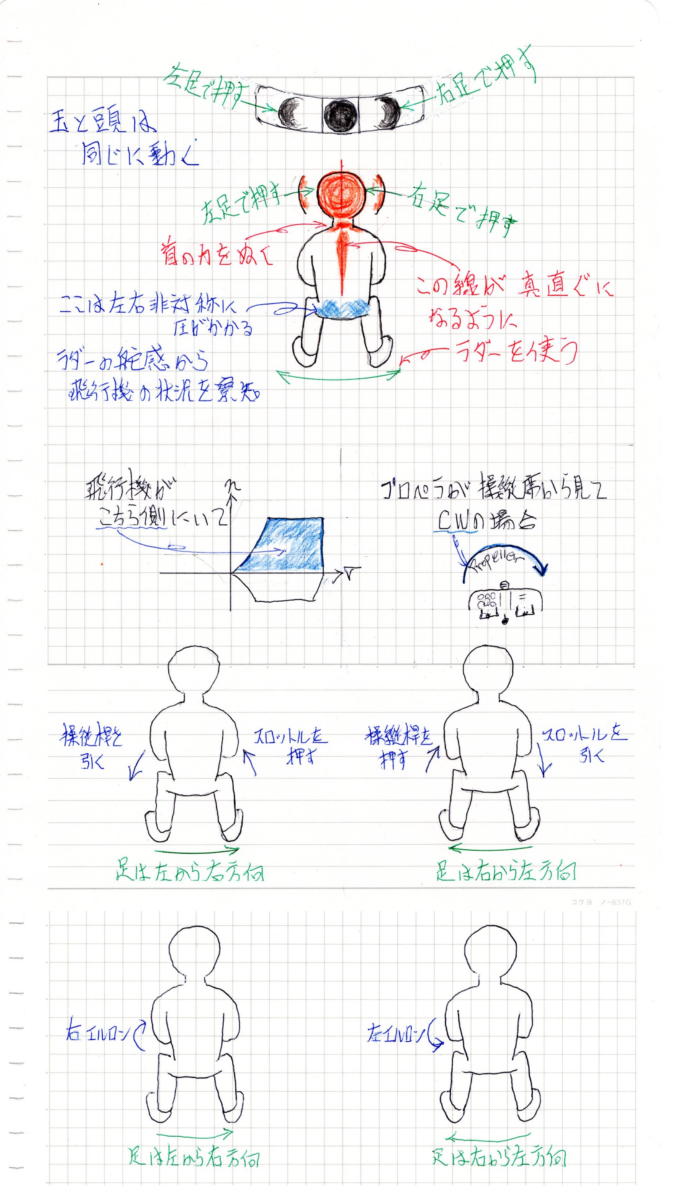 左足で押す
右足で押す
玉と頭は
同じに動く
左足で押す
右足で押す
首の力をぬく
この線が真直ぐに
なるように
ラダーを使う
ここは左右非対称に
圧がかかる
ラダーの舵感から
飛行機の状況を察知。
飛行機が
こちら側にいて
n
V
プロペラが操縦席から見て
CWの場合
Propeller
操縦桿を
引く
スロットルを
押す
操縦桿を
押す
スロットルを
引く
足は左から右方向
足は右から左方向
コクヨ ノ-837G
右エルロン
左エルロン
足は左から右方向
足は右から左方向